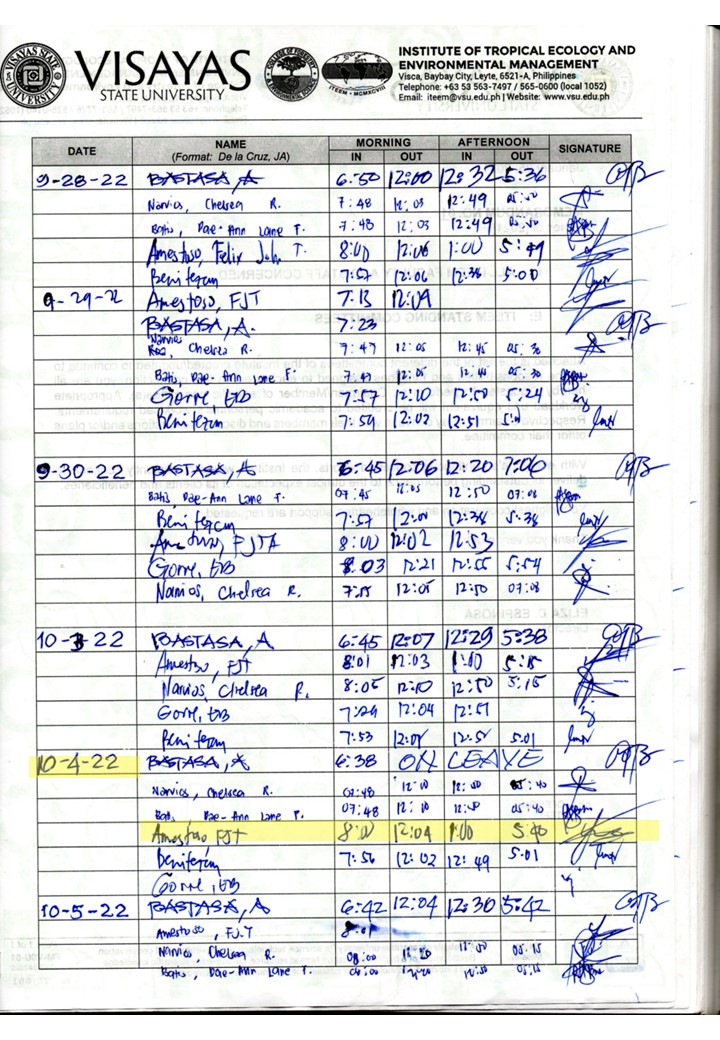 VISAYAS
STATE UNIVERSITY
INSTITUTE OF TROPICAL ECOLOGY AND
ENVIRONMENTAL MANAGEMENT
Visca, Baybay City, Leyte, 6521-A, Philippines
Telephone: +63 53 563-7497 / 565-0600 (local 1052)
Email: iteem@vsu.edu.ph | Website: www.vsu.edu.ph
DATE NAME (Format: De la Cruz, JA) MORNING IN OUT AFTERNOON IN OUT SIGNATURE
9-28-22 BASTASA, A 6:50 12:00 12:32 5:36
Narvios, Chelsea R. 7:48 12:03 12:49 05:40
Batis, Dae-Ann Lane T. 7:48 12:03 12:49
Amestoso, Felix John T. 8:00 12:06 1:00 5:49
Benitezm 7:57 12:06 12:38 5:00
9-29-22 Amestoso, FJT 7:13 12:09
BASTASA, A. 7:23
Narvios, Chelsea R. 7:47 12:05 12:45 05:30
Batis, Dae-Ann Lane T. 7:47 12:05 12:45 05:30
Gorre, EB 7:57 12:10 12:50 5:24
Benitezm 7:59 12:02 12:51 5:01
9-30-22 BASTASA, A 6:45 12:06 12:20 7:06
Batis, Dae-Ann Lane T. 07:45 12:05 12:50 07:08
Benitezm 7:57 12:01 12:38 5:38
FJTA 8:00 12:02 12:53
Gorre, EB 8:03 12:21 12:55 5:54
Narvios, Chelsea R. 7:55 12:05 12:50 07:08
10-3-22 BASTASA, A 6:45 12:07 12:29 5:38
Amestoso, FJT 8:01 12:03 1:00 5:15
Narvios, Chelsea R. 8:05 12:10 12:50 5:15
Gorre, EB 7:29 12:04 12:57
Benitezm 7:53 12:01 12:51 5:01
10-4-22 BASTASA, A 6:38 ON LEAVE
Narvios, Chelsea R. 07:48 12:10 12:50 05:40
Batis, Dae-Ann Lane T. 07:48 12:10 12:50 05:40
Amestoso FJT 8:00 12:04 1:00 5:40
Benitezm 7:56 12:02 12:49 5:01
Gorre, EB
10-5-22 BASTASA, A 6:42 12:04 12:30 5:42
Amestoso, FJ.T 8:01
Narvios, Chelsea R. 08:00 12:20 12:50 05:15
Batis, Dae-Ann Lane T. 08:00 12:20 12:50 05:15